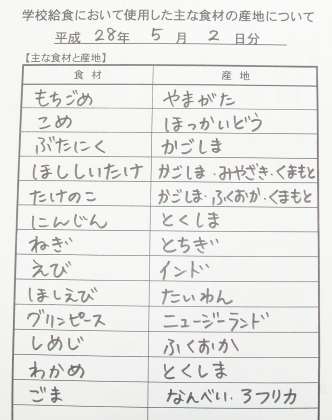 学校給食において使用した主な食材の産地について
平成 28年 5月 2日分
【主な食材と産地】
食材 産地
もちごめ やまがた
こめ ほっかいどう
ぶたにく かごしま
ほししいたけ かごしま・みやざき・くまもと
たけのこ かごしま・ふくおか・くまもと
にんじん とくしま
ねぎ とちぎ
えび インド
ほしえび たいわん
グリンピース ニュージーランド
しめじ ふくおか
わかめ とくしま
ごま なんべい・アフリカ